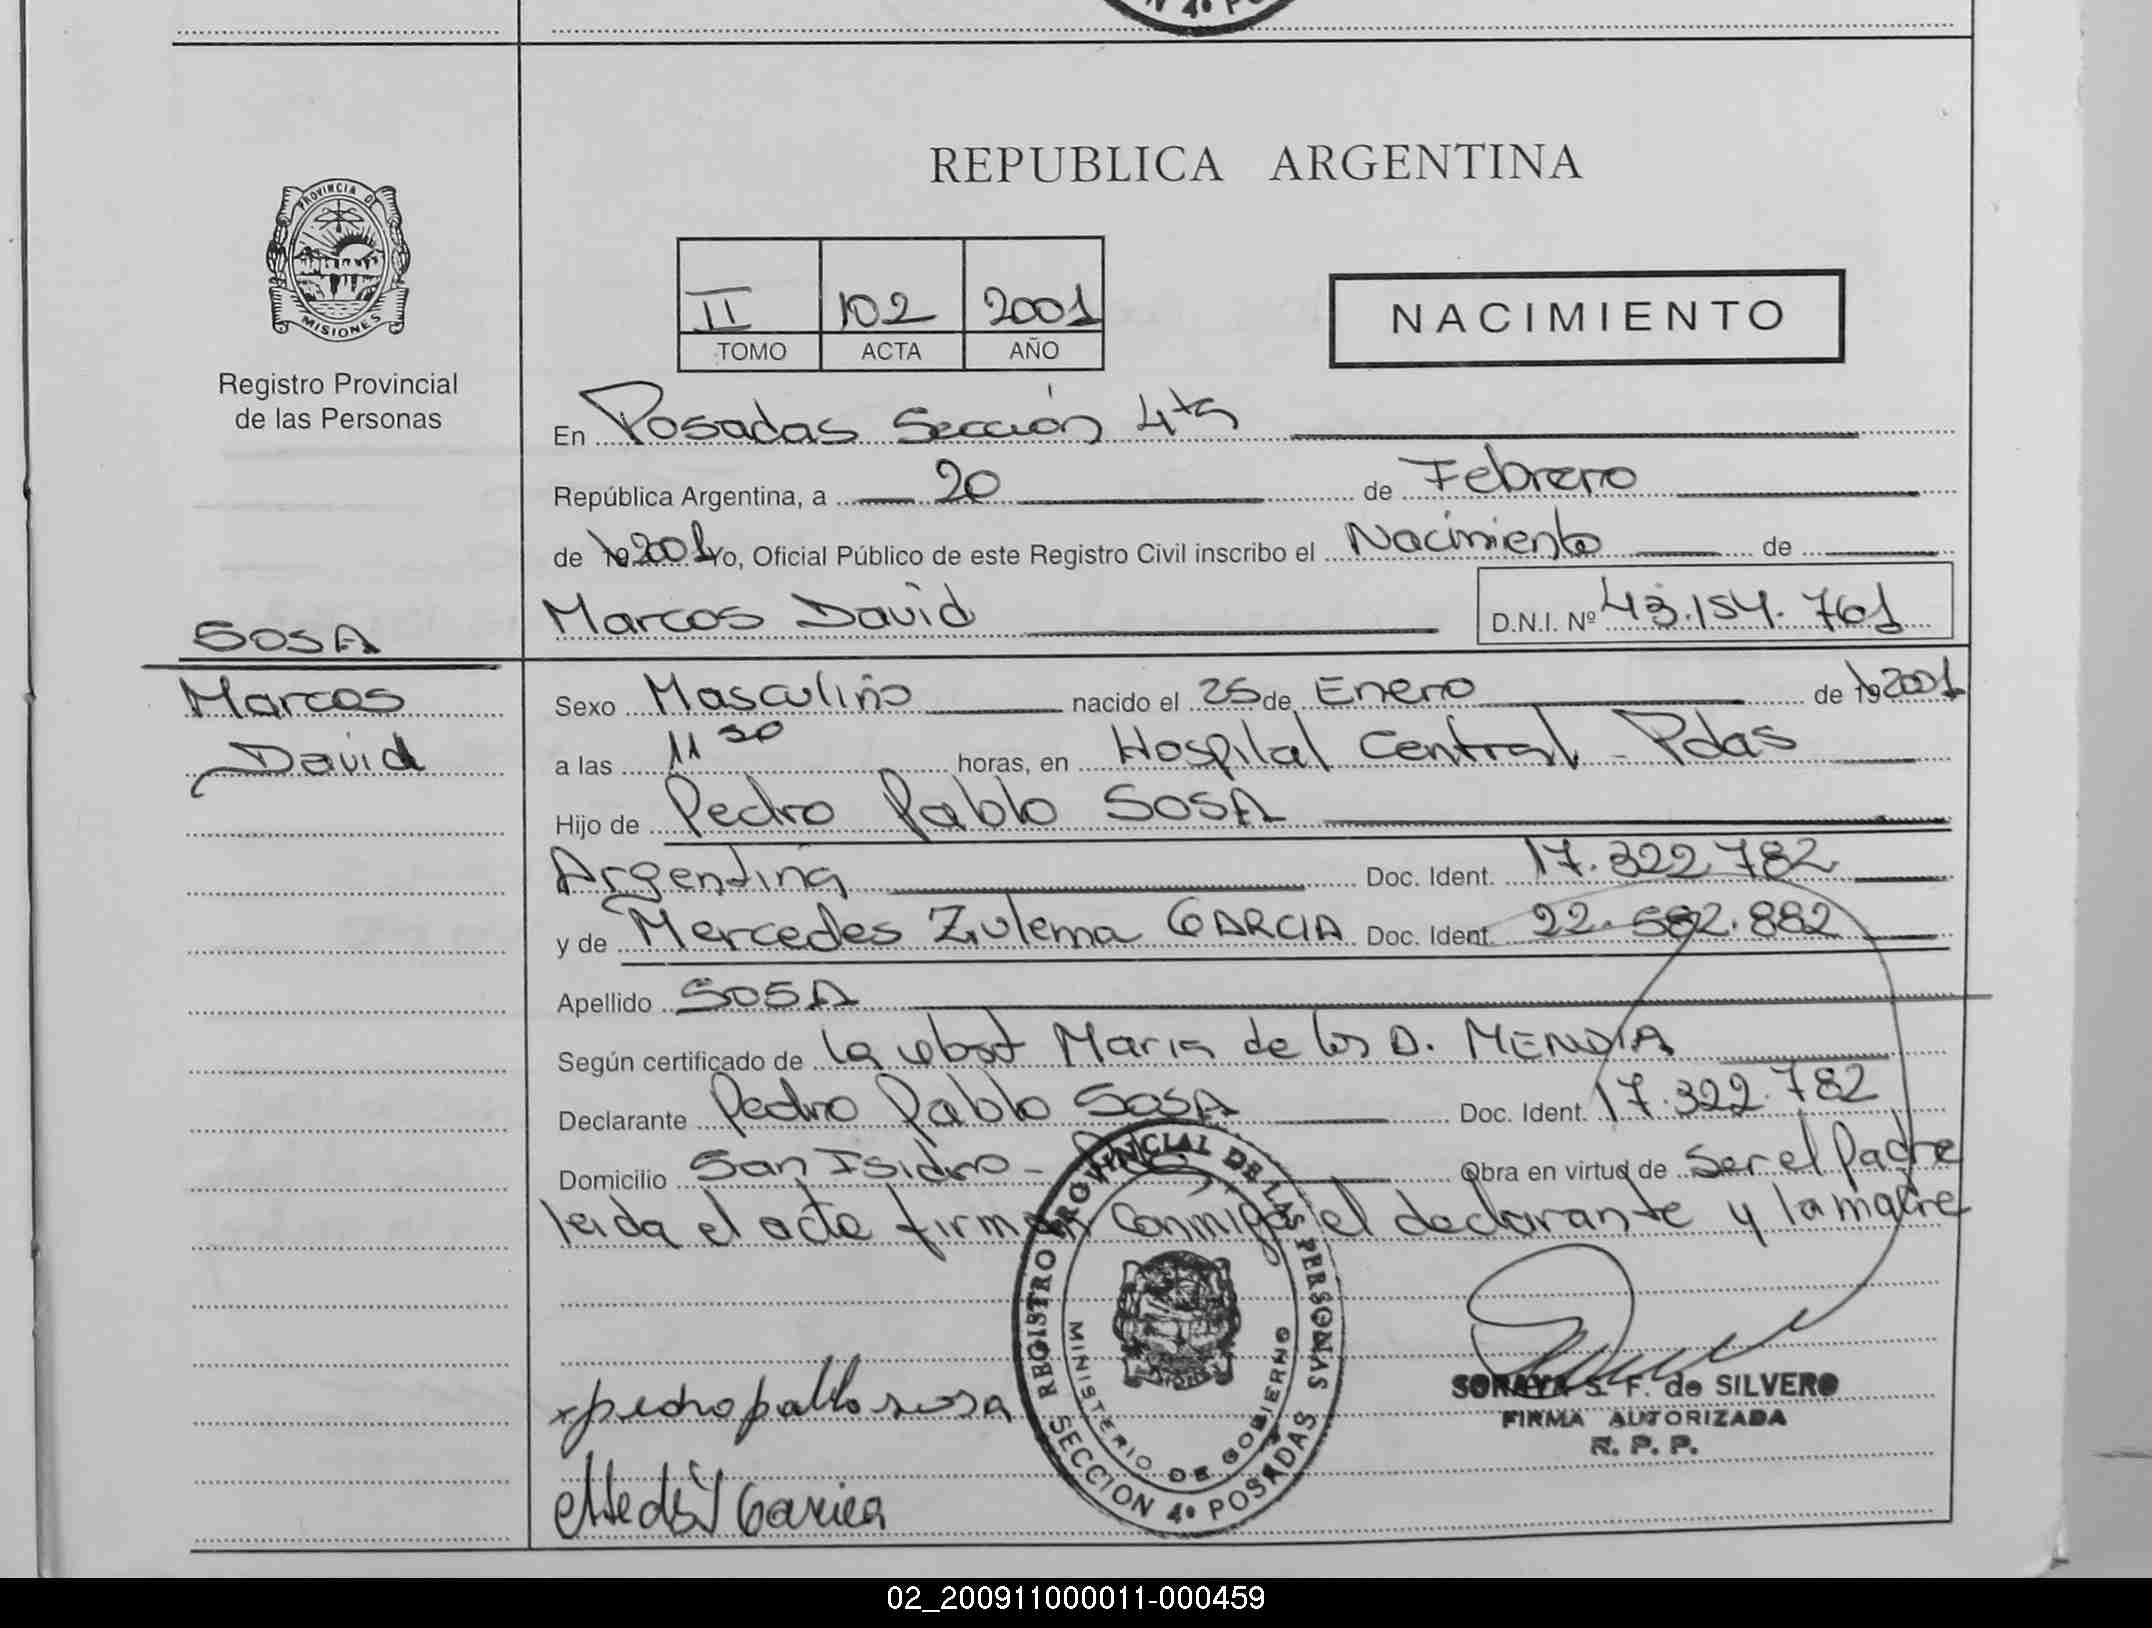 N 4º PO
REPUBLICA ARGENTINA
PROVINCIA DE
MISIONES
Registro Provincial
de las Personas
II 102 2001
TOMO ACTA AÑO
NACIMIENTO
En Posadas Sección 4ta
República Argentina, a 20 de Febrero
de 19 2001 Yo, Oficial Público de este Registro Civil inscribo el Nacimiento de
Marcos David D.N.I. Nº 43.154.761
SOSA
Marcos
David
Sexo Masculino nacido el 25 de Enero de 19 2001
a las 11 30 horas, en Hospital Central - Pdas
Hijo de Pedro Pablo SOSA
Argentina Doc. Ident. 17.322.782
y de Mercedes Zulema GARCIA Doc. Ident. 22.582.882
Apellido SOSA
Según certificado de la obst Maria de los D. MENDIA
Declarante Pedro Pablo SOSA Doc. Ident. 17.322.782
Domicilio San Isidro - Obra en virtud de Ser el Padre
leida el acta firman conmigo el declarante y la madre
REGISTRO PROVINCIAL DE LAS PERSONAS
MINISTERIO DE GOBIERNO
SECCION 4º POSADAS
x pedro pablo sosa
SORAYA S. F. de SILVERO
FIRMA AUTORIZADA
R. P. P.
02_200911000011-000459